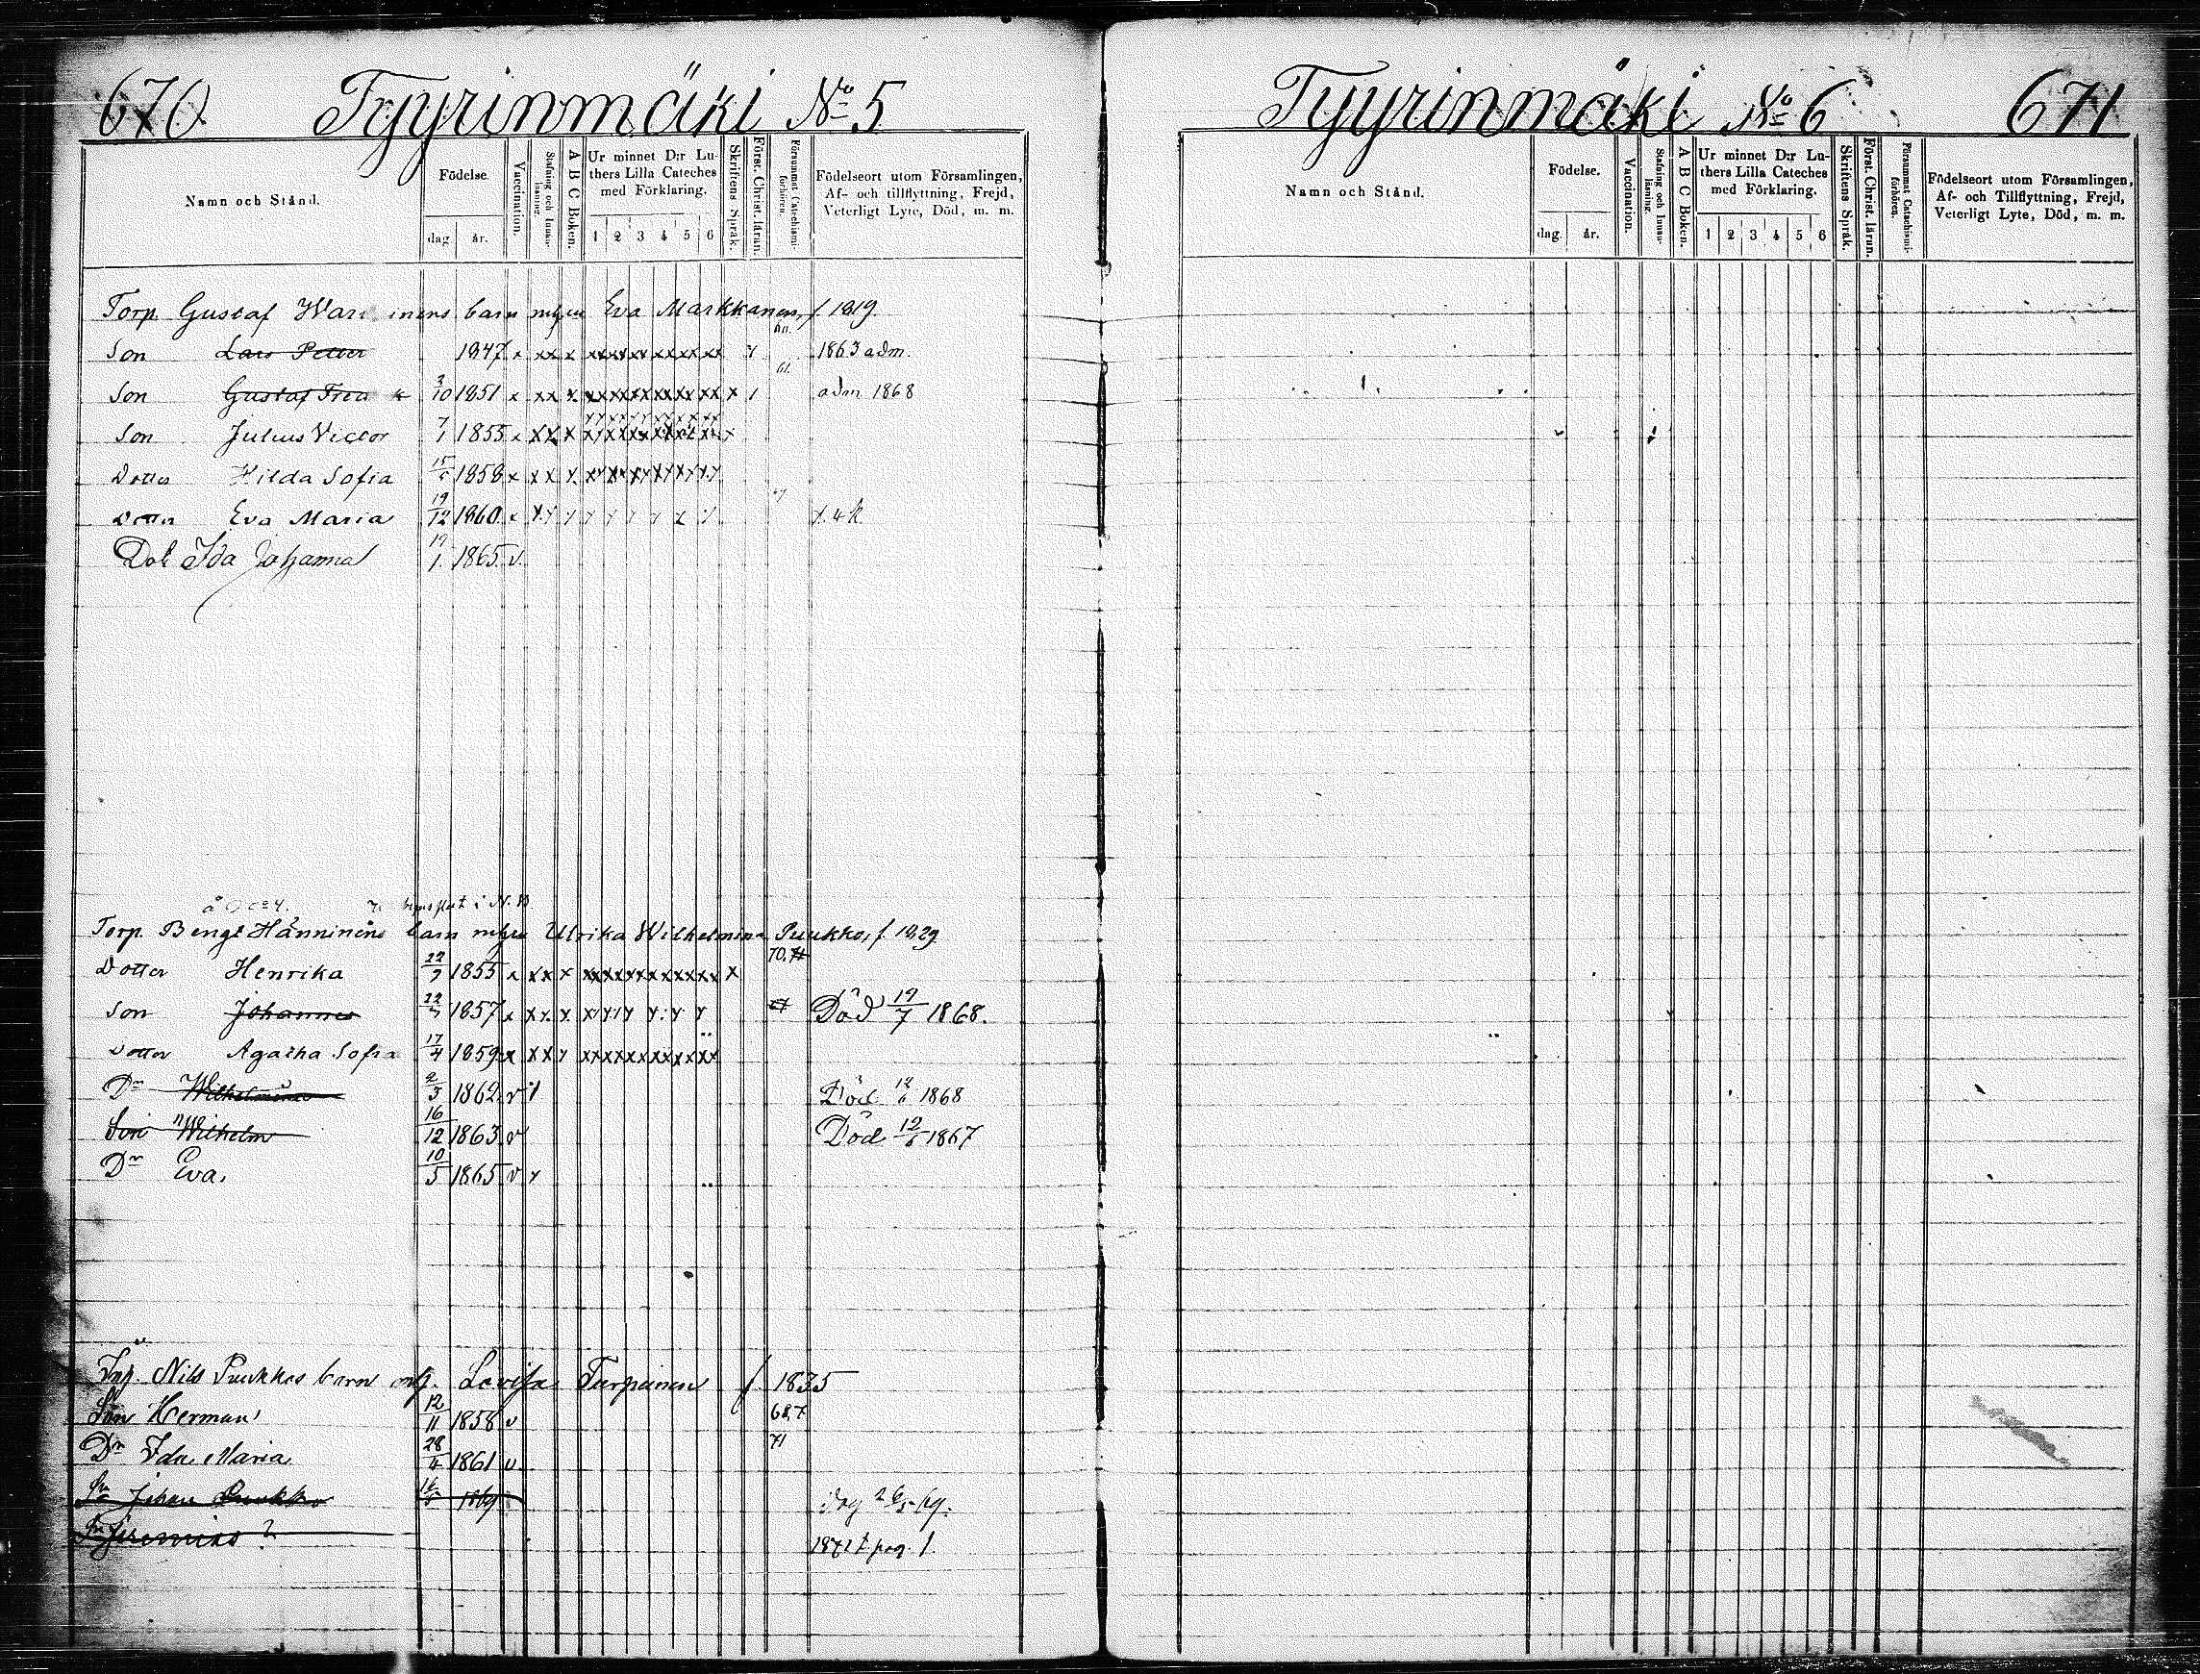 670. Tyyrinmäki No 5
Namn och Stånd.
Födelse.
dag
år.
Vaccination.
Stafning och Innanläsning.
A B C Boken.
Ur minnet D:r Luthers Lilla Cateches med Förklaring.
1 2 3 4 5 6
Skriftens Språk.
Först. Christ. läran.
Försummat Catechismiförhören.
Födelseort utom Församlingen, Af- och tillflyttning, Frejd, Veterligt Lyte, Död, m. m.
Torp Gustaf inens barn m hu Eva Markkanen, f 1819.
Son Lars Petter 1847 x xx x xxxxxxxxxxxx 1863 adm.
Son Gustaf 3/10 1851 x xx x xxxxxxxxxxxx x 1 adm 1868
Son Julius Victor 7/1 1855 x xx x xxxxxxxxxxxx x
Dotter Hilda Sofia 15/ 1858 x xx x
Dotter Eva Maria 19/12 1860 x
Dot Ida Johanna 19/1 1865 v.
Torp. Bengt Hänninens barn Ulrika Wilhelmina Puukko, f. 1829
Dotter Henrika 22/7 1855 x xx x xxxxxxxxxxxx x 70.71
Son Johannes 1857 x Död 19/7 1868.
Dotter Agatha Sofia 17/4 1859 x xx
Dr Wilhelmina 2/3 1862 v Död 1868
Son Wilhelm 16/12 1863 v Död 12/ 1867
Dr Eva, 10/5 1865 v
Nils Puukkos barn Lovisa Turpeinen f 1835
Son Herman 12/11 1858 v
Dr Ida Maria 28/ 1861 v 71
Johan Puukko 1869
Jeremias ? pag. 1.
Tyyrinmäki No 6 671
Namn och Stånd.
Födelse.
dag.
år.
Vaccination.
Stafning och Innanläsning.
A B C Boken.
Ur minnet D:r Luthers Lilla Cateches med Förklaring.
1 2 3 4 5 6
Skriftens Språk.
Först. Christ. läran.
Försummat Catechismiförhören.
Födelseort utom Församlingen, Af- och Tillflyttning, Frejd, Veterligt Lyte, Död, m. m.